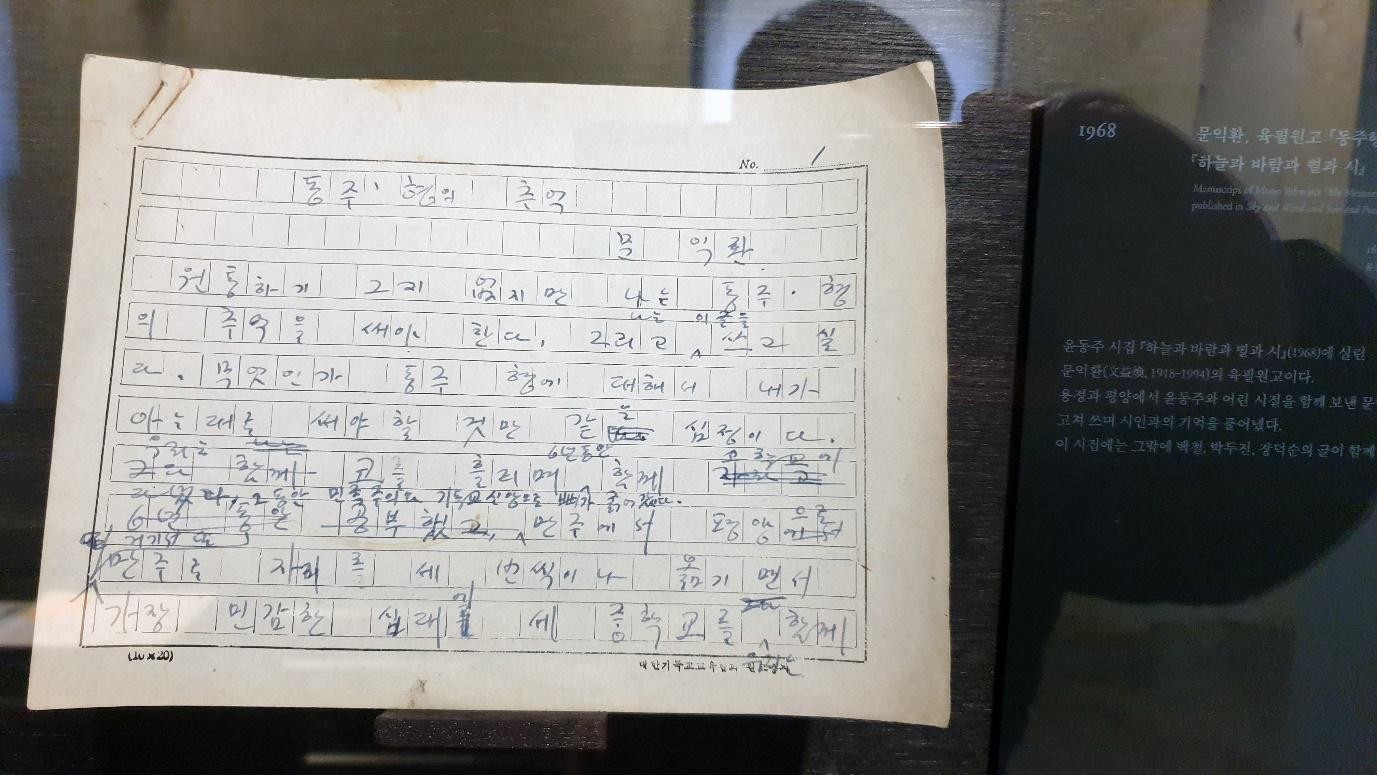 No. 1
동주 형의 추억
문 익환
원통하기 그지 없지만 나는 동주 형
나는 이 글을
의 추억을 써야 한다. 그리고 쓰고 싶
다. 무엇인가 동주 형에 대해서 내가
아는 대로 써야 할 것만 같은 심정이다.
우리는 6년동안
함께 코를 흘리며 함께
그동안 민족주의와 기독교 신앙으로 뼈가 굵어 갔다.
6년 동안 공부했고, 만주에서 평양으로
거기서 또
만주로 자리를 세 번씩이나 옮기면서
가장 민감한 십대에 세 중학교를 함께
(10×20)
대한기독교교육협회 원고용지
1968
문익환, 육필원고 『동주형
『하늘과 바람과 별과 시』
Manuscript of Moon Ik-hwan's "My Memor
published in Sky and Wind and Star and Poe
윤동주 시집 『하늘과 바람과 별과 시』(1968)에 실린
문익환(文益煥, 1918-1994)의 육필원고이다.
용정과 평양에서 윤동주와 어린 시절을 함께 보낸 문
고쳐 쓰며 시인과의 기억을 풀어냈다.
이 시집에는 그밖에 백철, 박두진, 장덕순의 글이 함께